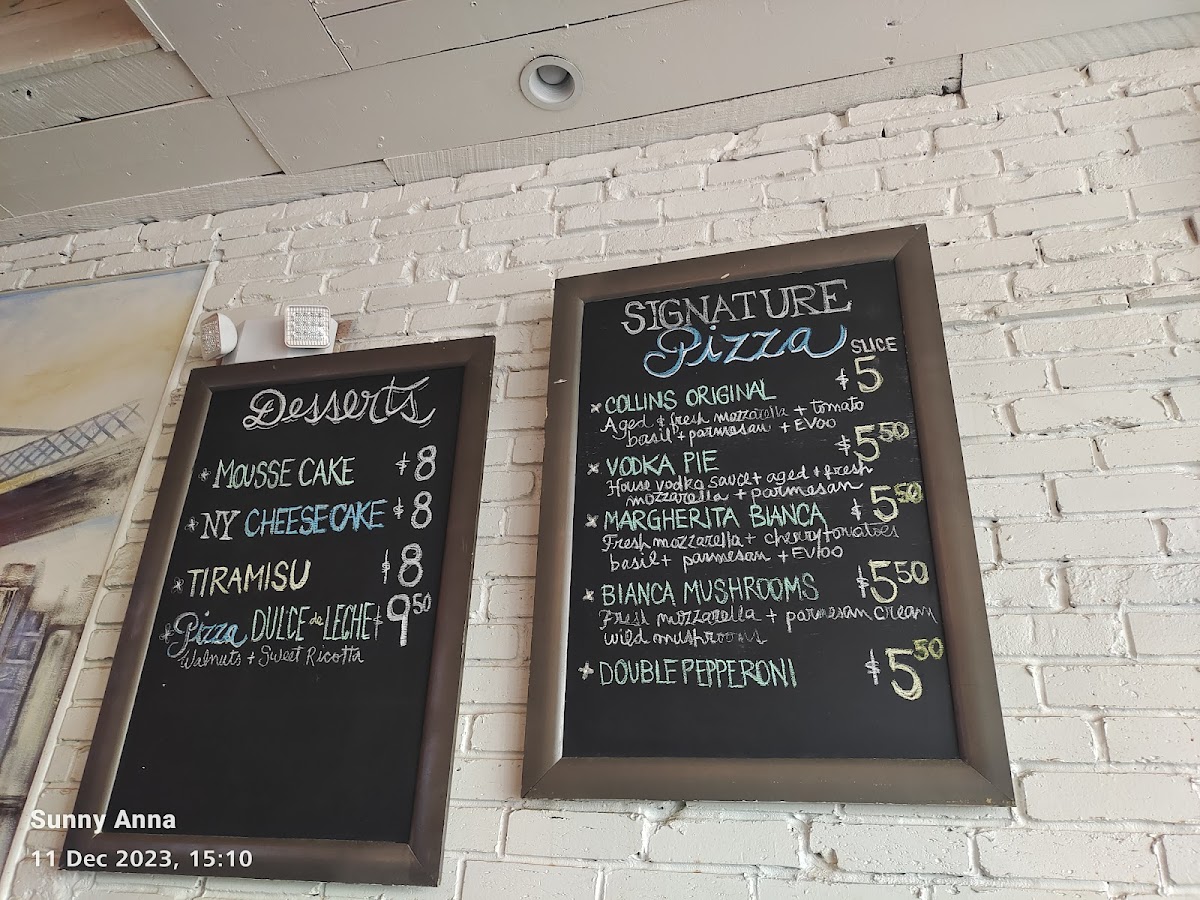 Desserts
* MOUSSE CAKE $8
* NY CHEESECAKE $8
* TIRAMISU $8
* Pizza DULCE de LECHE $9 50
Walnuts + Sweet Ricotta
SIGNATURE
Pizza
SLICE
* COLLINS ORIGINAL $5
Aged + fresh mozzarella + tomato
basil + parmesan + EVOO
* VODKA PIE $5 50
House vodka sauce + aged + fresh
mozzarella + parmesan
* MARGHERITA BIANCA $5 50
Fresh mozzarella + cherry tomatoes
basil + parmesan + EVOO
* BIANCA MUSHROOMS $5 50
Fresh mozzarella + parmesan cream
wild mushrooms
* DOUBLE PEPPERONI $5 50
Sunny Anna
11 Dec 2023, 15:10